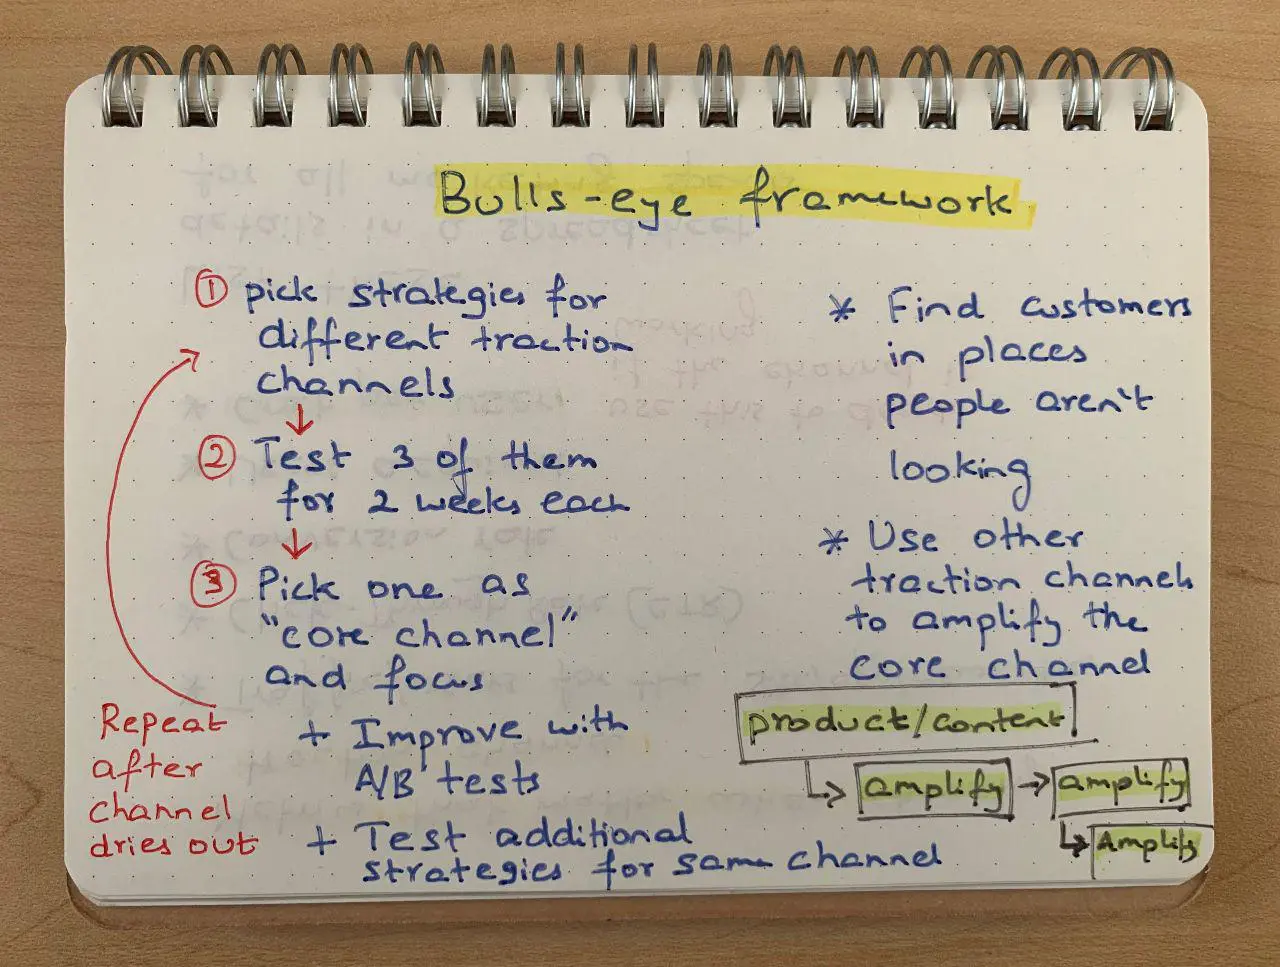 Bulls-eye framework
① pick strategies for
different traction
channels
↓
② Test 3 of them
for 2 weeks each
↓
③ Pick one as
"core channel"
and focus
+ Improve with
A/B tests
+ Test additional
strategies for same channel
Repeat
after
channel
dries out
* Find customers
in places
people aren't
looking
* Use other
traction channels
to amplify the
core channel
product/content
↳ amplify → amplify
↳ Amplify